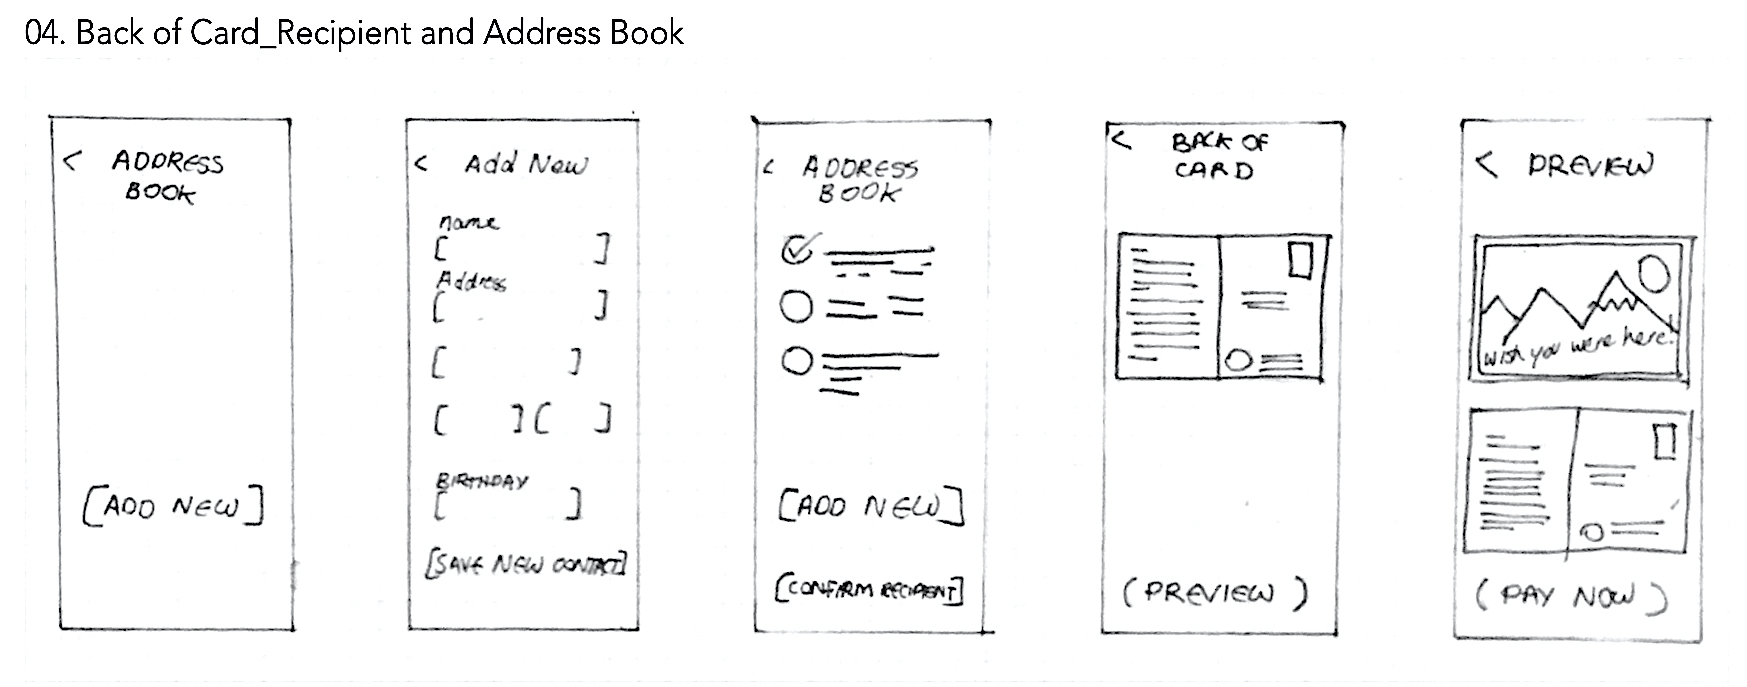 04. Back of Card_Recipient and Address Book
< ADDRESS
BOOK
[ADD NEW]
< Add New
name
[ ]
Address
[ ]
[ ]
[ ] [ ]
BIRTHDAY
[ ]
[SAVE NEW CONTACT]
< ADDRESS
BOOK
[ADD NEW]
[CONFIRM RECIPIENT]
< BACK OF
CARD
(PREVIEW)
< PREVIEW
wish you were here!
(PAY NOW)